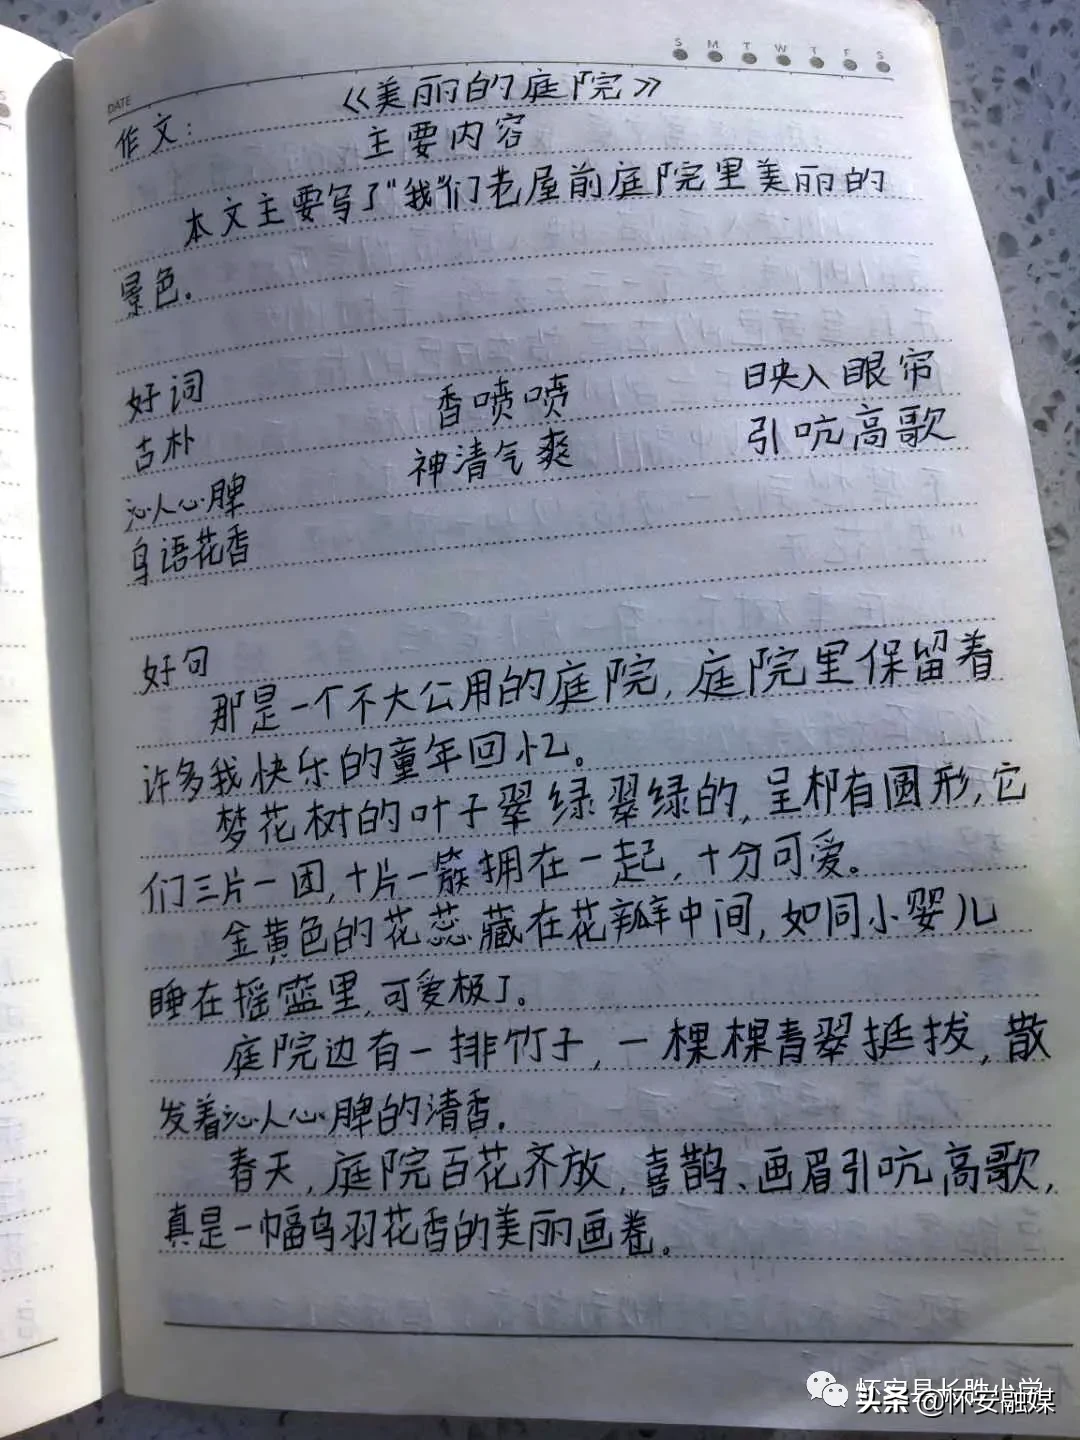 DATE
S M T W T F S
《美丽的庭院》
作文:
主要内容
本文主要写了"我"们老屋前庭院里美丽的
景色。
好词 香喷喷 映入眼帘
古朴 神清气爽 引吭高歌
沁人心脾
鸟语花香
好句
那是一个不大公用的庭院,庭院里保留着
许多我快乐的童年回忆。
梦花树的叶子翠绿翠绿的,呈椭圆形,它
们三片一团,十片一簇拥在一起,十分可爱。
金黄色的花蕊藏在花瓣中间,如同小婴儿
睡在摇篮里,可爱极了。
庭院边有一排竹子,一棵棵青翠挺拔,散
发着沁人心脾的清香。
春天,庭院百花齐放,喜鹊、画眉引吭高歌,
真是一幅鸟羽花香的美丽画卷。
怀安县长胜小学
头条 @怀安融媒